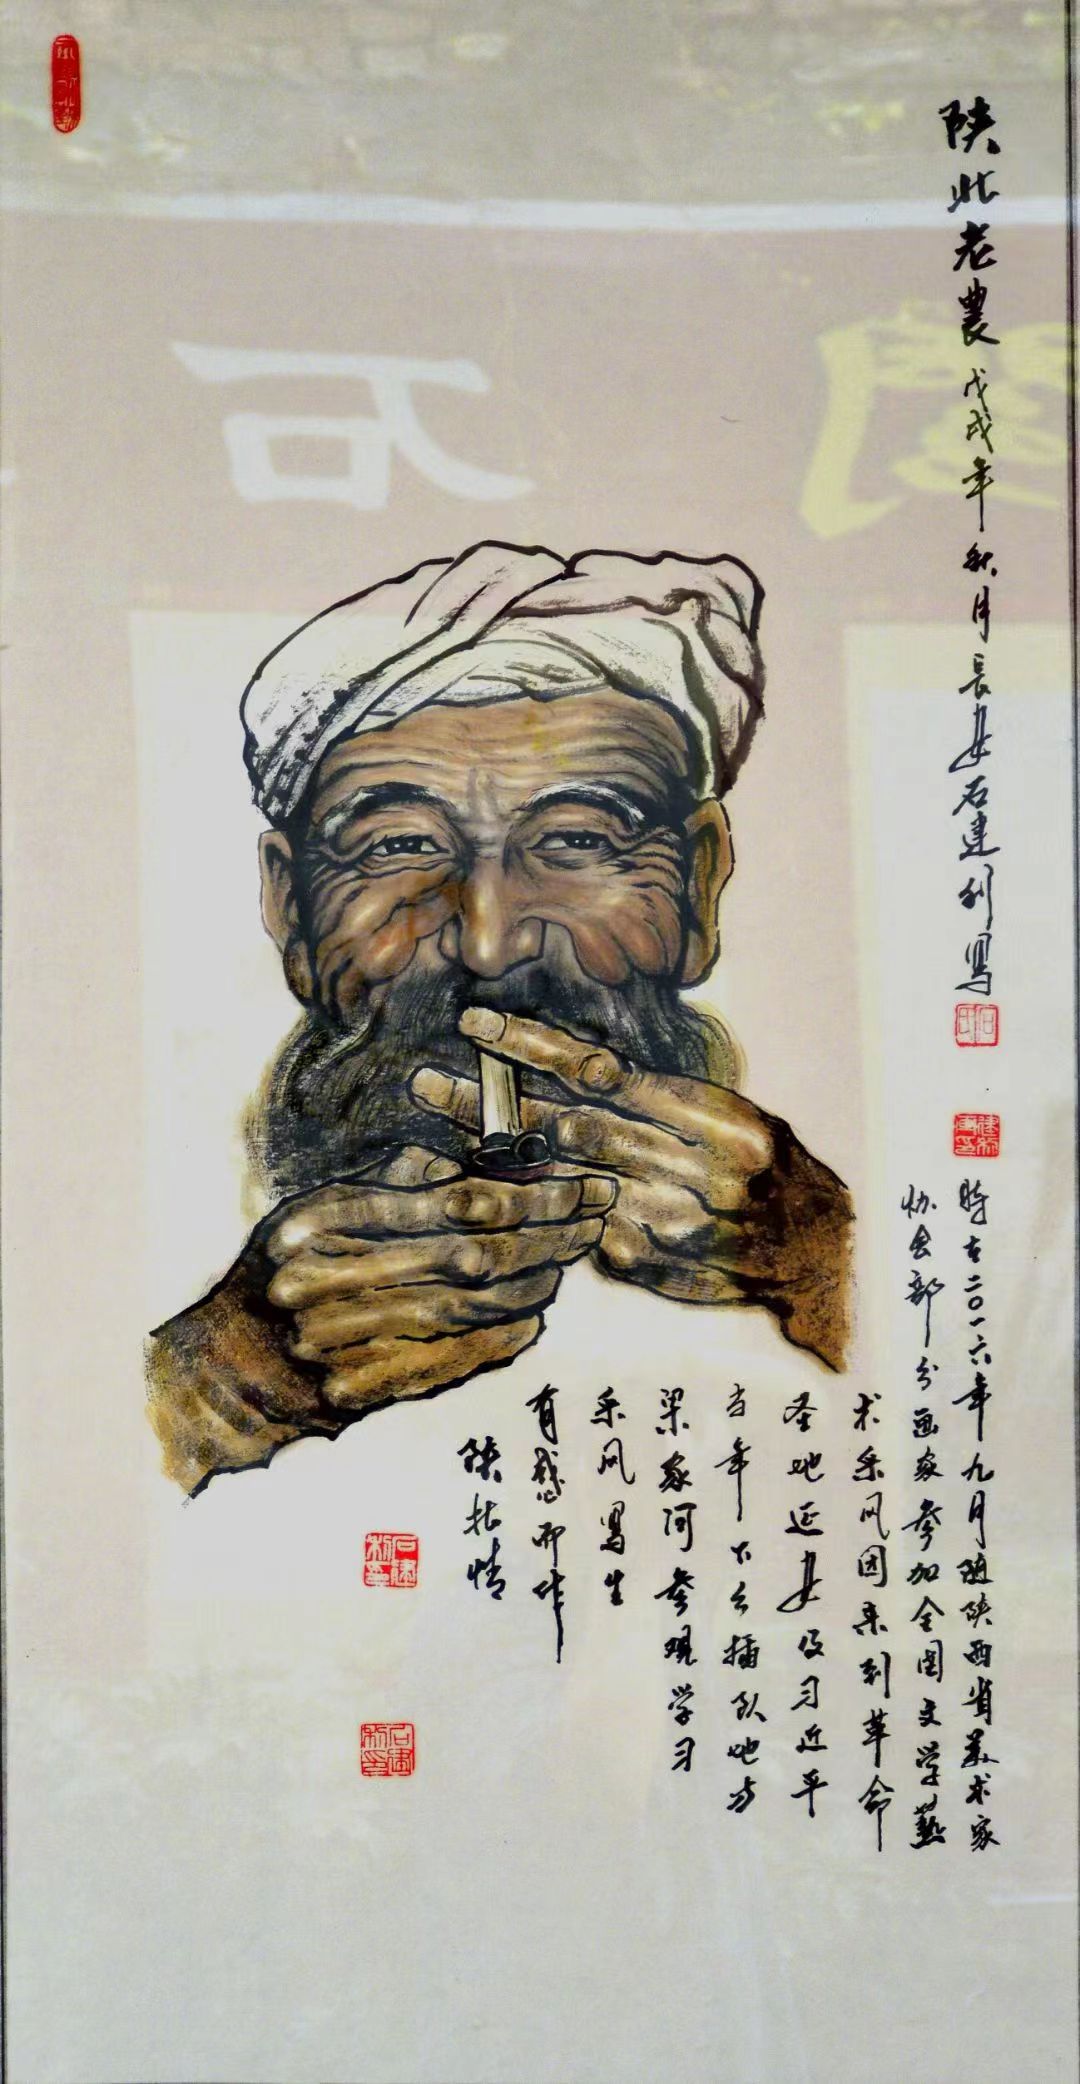 陕北老農 戊戌年秋月長安石建利寫
時在二〇一六年九月随陕西省美术家
协会部分画家参加全国文学藝
术采风团来到革命
圣地延安及习近平
当年下乡插队地方
梁家河参观学习
采风写生
有感而作
陕北情
石
石建利印
石建利印